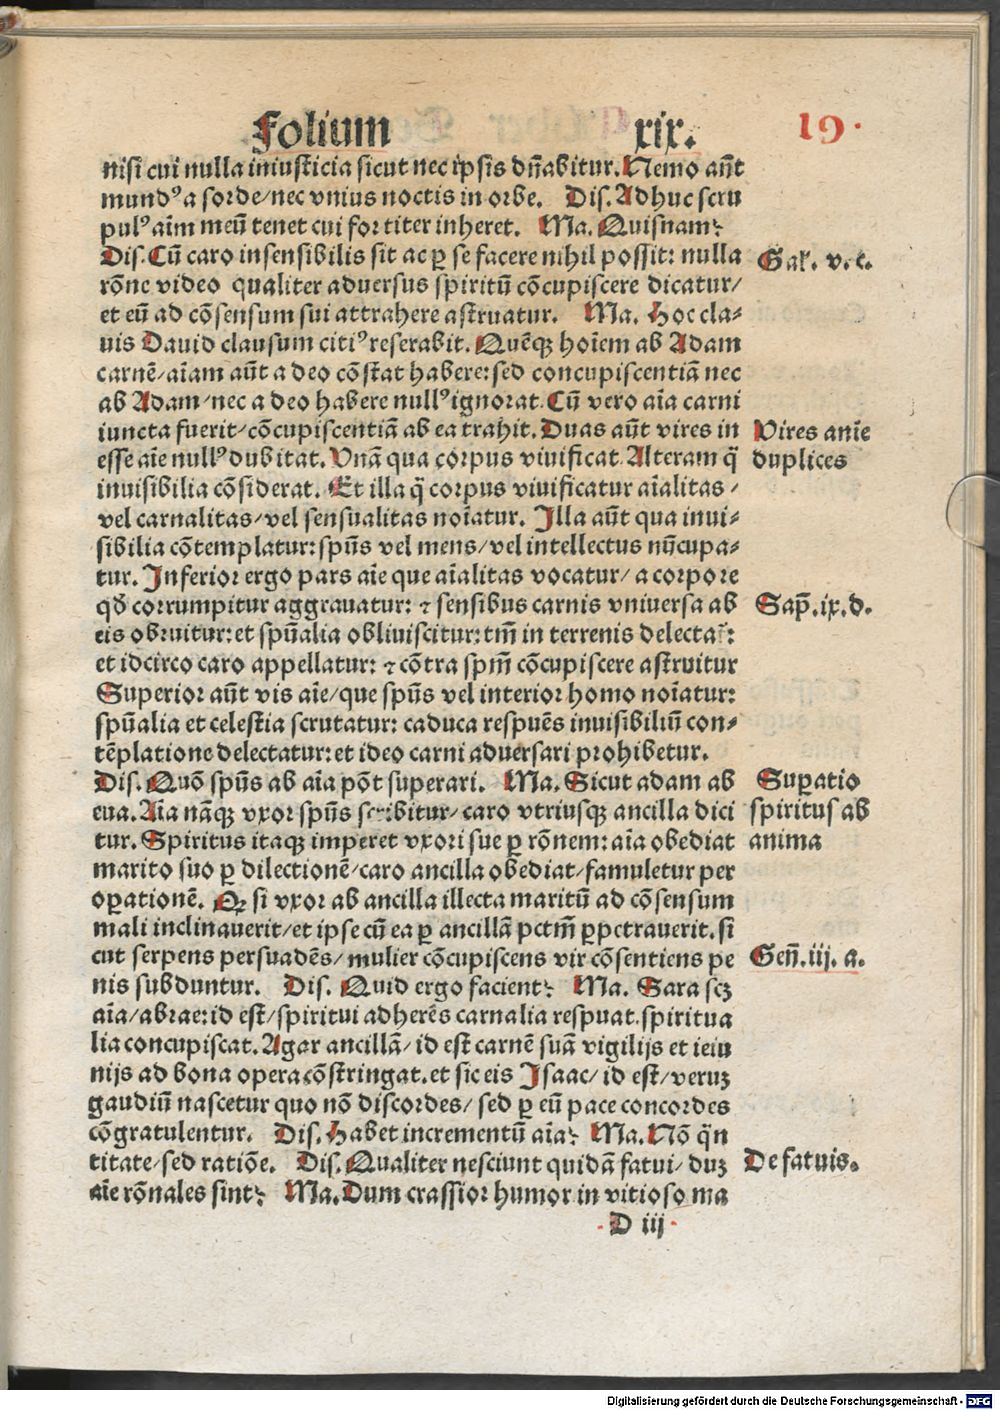 Folium xix. 19.
nisi cui nulla iniusticia sicut nec ipsis dn̄abitur. Nemo aūt
mundꝰ a sorde/ nec vnius noctis in orbe. Dis. Adhuc scru
pulꝰ aīm meū tenet cui fortiter inheret. Ma. Quisnam?
Dis. Cū caro insensibilis sit ac ꝑ se facere nihil possit: nulla
rōne video qualiter aduersus spiritū cōcupiscere dicatur/
Gal. v. c.
et eū ad cōsensum sui attrahere astruatur. Ma. Hoc cla-
uis Dauid clausum citiꝰ reserabit. Quēqꝫ hoīem ab Adam
carnē/ aīam aūt a deo cōstat habere: sed concupiscentiā nec
ab Adam/ nec a deo habere nullꝰ ignorat. Cū vero aīa carni
iuncta fuerit/ cōcupiscentiā ab ea trahit. Duas aūt vires in
esse aīe nullꝰ dubitat. Vnā qua corpus viuificat. Alteram q̄
Vires anīe
duplices
inuisibilia cōsiderat. Et illa q̄ corpus viuificatur aīalitas/
vel carnalitas/ vel sensualitas noīatur. Illa aūt qua inui-
sibilia cōtemplatur: spūs vel mens/ vel intellectus nūcupa-
tur. Inferior ergo pars aīe que aīalitas vocatur/ a corpore
qđ corrumpitur aggrauatur: ⁊ sensibus carnis vniuersa ab
Sap̄. ix. d.
eis obruitur: et spūalia obliuiscitur: tm̄ in terrenis delectaꝭ:
et idcirco caro appellatur: ⁊ cōtra spm̄ cōcupiscere astruitur
Superior aūt vis aīe/ que spūs vel interior homo noīatur:
spūalia et celestia scrutatur: caduca respuēs inuisibiliū con-
tēplatione delectatur: et ideo carni aduersari prohibetur.
Dis. Quō spūs ab aīa pōt superari. Ma. Sicut adam ab
eua. Aīa nāqꝫ vxor spūs scribitur/ caro vtriusqꝫ ancilla dici
tur. Spiritus itaqꝫ imperet vxori sue ꝑ rōnem: aīa obediat
Suꝑatio
spiritus ab
anima
marito suo ꝑ dilectionē/ caro ancilla obediat/ famuletur per
oꝑationē. Qꝫ si vxor ab ancilla illecta maritū ad cōsensum
mali inclinauerit/ et ipse cū ea ꝑ ancillā pctm̄ ꝑpetrauerit. si
cut serpens persuadēs/ mulier cōcupiscens vir cōsentiens pe
Gen̄. iij. a.
nis subduntur. Dis. Quid ergo facient? Ma. Sara scꝫ
aīa/ abrae: id est/ spiritui adherēs carnalia respuat. spiritua
lia concupiscat. Agar ancillā/ id est carnē suā vigilijs et ieiu
nijs ad bona opera cōstringat. et sic eis Isaac/ id est/ veruꝫ
gaudiū nascetur quo nō discordes/ sed ꝑ eū pace concordes
cōgratulentur. Dis. Habet incrementū aīa? Ma. Nō q̄n
titate/ sed ratiōe. Dis. Qualiter nesciunt quidā fatui/ duꝫ
De fatuis.
aīe rōnales sint? Ma. Dum crassior humor in vitioso ma
D iij
Digitalisierung gefördert durch die Deutsche Forschungsgemeinschaft - DFG